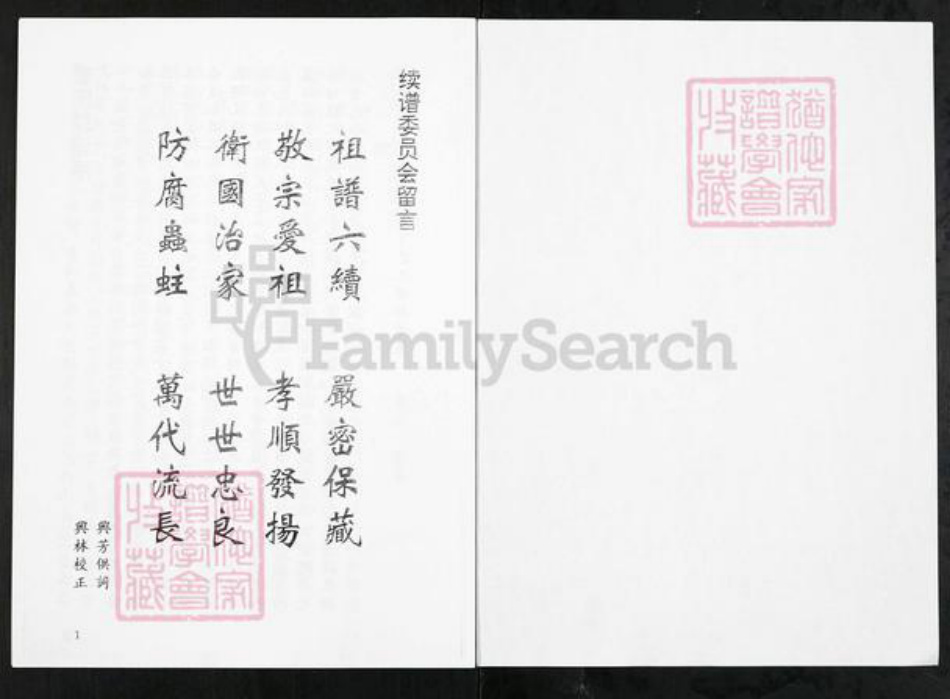 续谱委员会留言
祖譜六續 嚴密保藏
敬宗愛祖 孝順發揚
衛國治家 世世忠良
防腐蟲蛀 萬代流長
興芳供詞
興林校正
1
猶他家
譜學會
收藏
猶他家
譜學會
收藏
FamilySearch